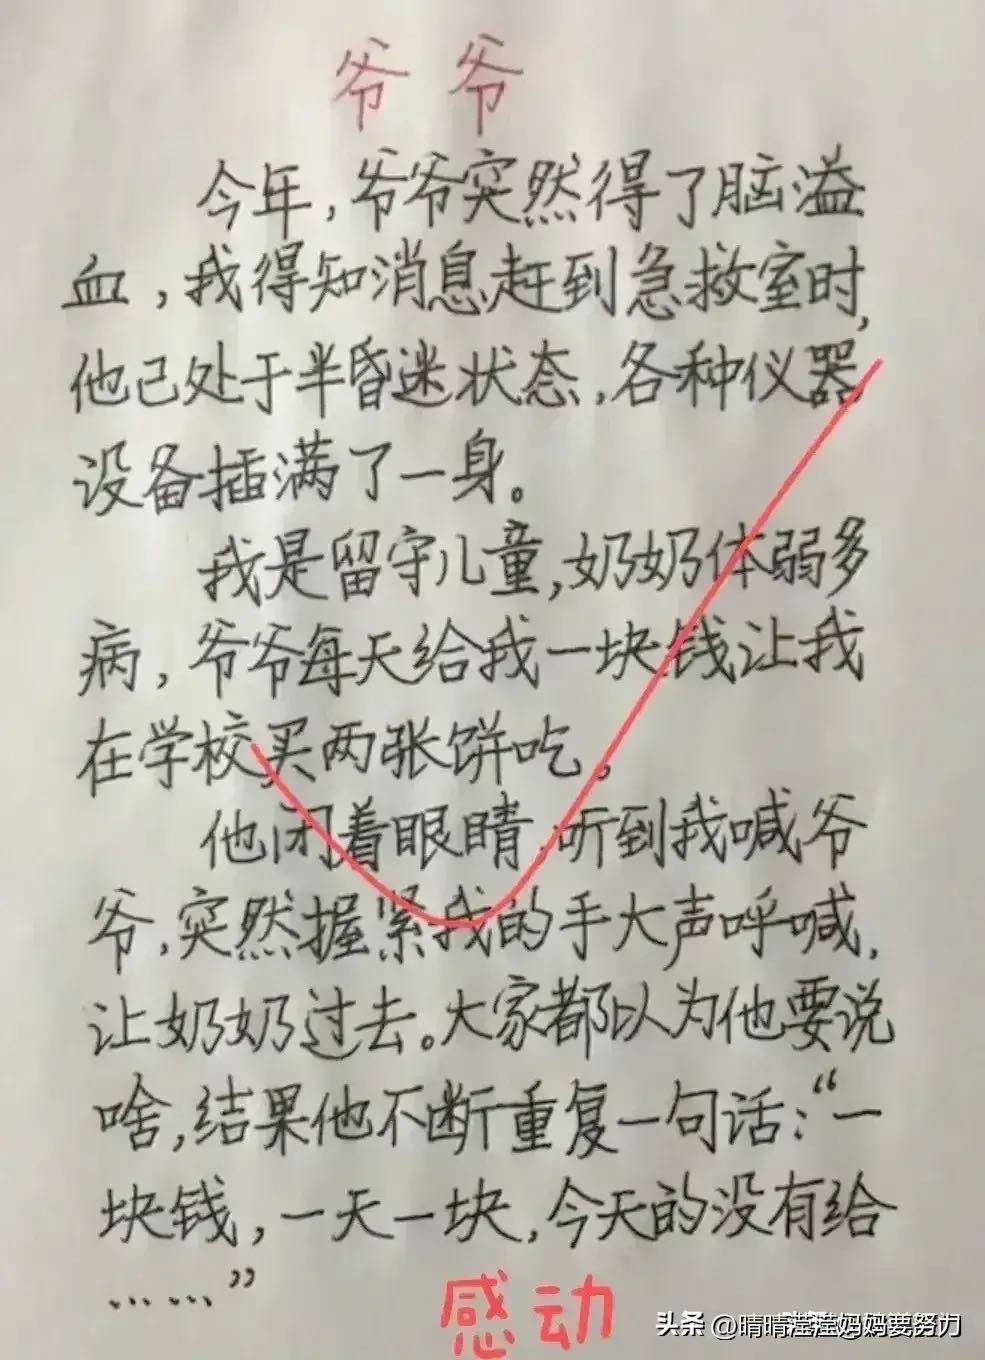 爷爷
今年,爷爷突然得了脑溢
血,我得知消息赶到急救室时,
他已处于半昏迷状态,各种仪器
设备插满了一身。
我是留守儿童,奶奶体弱多
病,爷爷每天给我一块钱让我
在学校买两张饼吃。
他闭着眼睛,听到我喊爷
爷,突然握紧我的手大声呼喊,
让奶奶过去。大家都以为他要说
啥,结果他不断重复一句话:“一
块钱,一天一块,今天的没有给
……”
感动
头条 @晴晴滢滢妈妈要努力